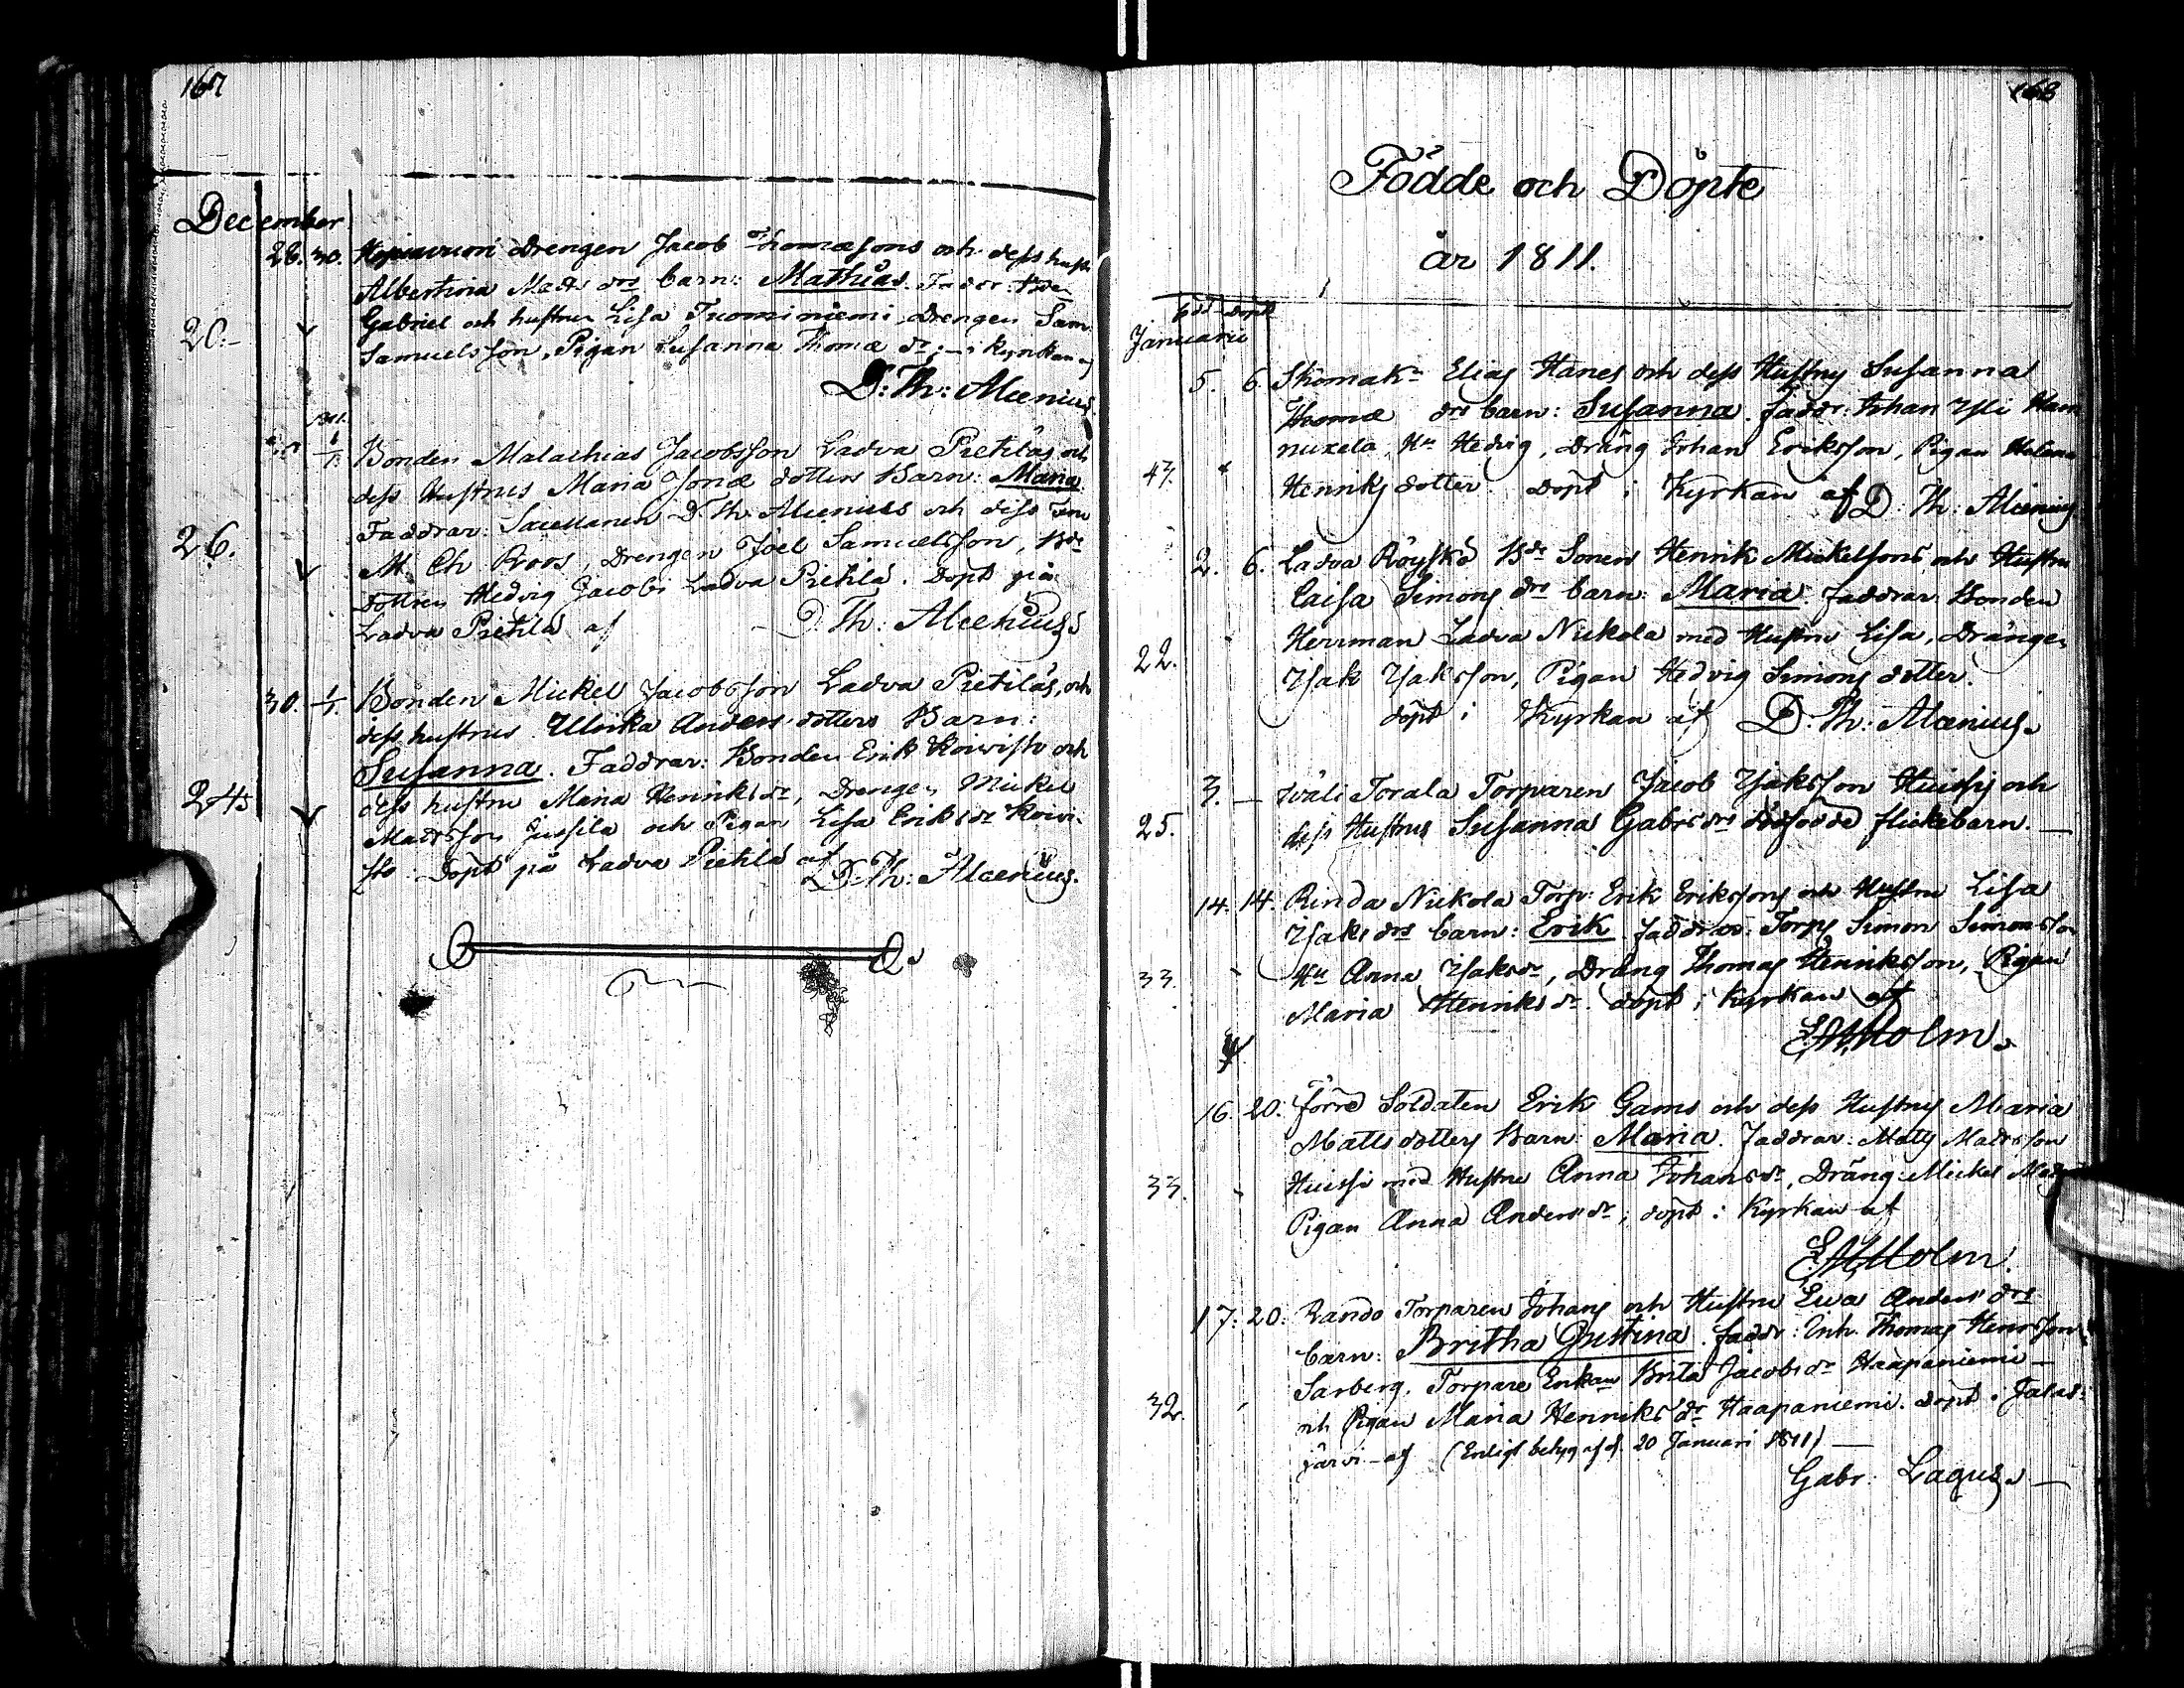 167
December
28. 30. Drengen Jacob Thomæsons och dess hustr
Albertina Mats drs barn: Mathias. Fadr:
20.- Gabriel och hustru Lisa Tuominiemi, Drengen Sam.
Samuelsson, Pigan Susanna Thomæ dr; - i Kyrkan af
D: Th: Alcenius.
1811.
1/1. Bonden Malachias Jacobsson Ladva Pietilas, och
dess Hustrus Maria Jonæ dotters Barn: Maria.
26. Faddrar: Sacellanen D. Th. Alcenius och dess Fru
M. Ch. Roos, Drengen Joel Samuelsson, Bde
dottren Hedvig Jacobs Ladva Pietilä. Döpt på
Ladva Pietilä af D. Th: Alcenius.
30. 1/1. Bonden Mickel Jacobsson Ladva Pietilas, och
dess hustrus Ulrika Anders dotters Barn:
Susanna. Faddrar: Bonden Erik Koivisto och
24 dess hustru Maria Henriksdr, Drengen Mickel
Madtsson Jussila och Pigan Lisa Eriksdr Koivi-
sto. Döpt på Ladva Pietilä af
D. Th: Alcenius.
168
Födde och Döpte
år 1811.
Född Döpt
Januarii
5. 6. Skomakn Elias Hanes och dess Hustrus Susanna
Thomæ drs barn: Susanna. faddr: Johan Yli Han
nuxela, Hu Hedvig, Dräng Johan Eriksson, Pigan Helena
43. Henriks dotter. Döpt i Kyrkan af D. Th: Alcenius
2. 6. Ladva Röyskö Bde Sonen Henrik Mickelsons och Hustru
Caisa Simons drs barn: Maria. faddrar: Bonden
22. Herrman Ladva Nickola med Hustru Lisa, Drängen
Isak Isaksson, Pigan Hedvig Simons dotter.
döpt i Kyrkan af D. Th: Alcenius.
3. — Wäli Torala Torparen Jacob Isaksson och
25. dess Hustrus Susanna Gabrsdrs dödfödde flickebarn. —
14. 14. Rinda Nickola Torp: Erik Erikssons och Hustru Lisa
Isaks drs barn: Erik. faddrar: Torps Simon Simonsson
33. Hu Anna Isaksdr, Dräng Thomas Henriksson, Pigan
Maria Henriksdr. döpt i Kyrkan af
Holm.
16. 20. förre Soldaten Erik Gams och dess Hustrus Maria
Matts dotters Barn: Maria. Faddrar: Matts Mattsson
33. Huissi med Hustru Anna Johansdr, Dräng: Mickel
Pigan Anna Andersdr; döpt i Kyrkan af
Holm.
17. 20. Rando Torparen Johans och Hustru Ewa Anders drs
barn: Britha Gustina. faddr: Inh. Thomas Henrsson
Sarberg. Torpare Enkan Brita Jacobsdr Haapaniemi —
32. och Pigan Maria Henriksdr Haapaniemi. döpt i Jalas-
järvi - af (Enligt betyg af d. 20 Januari 1811) —
Gabr: Lagus. —